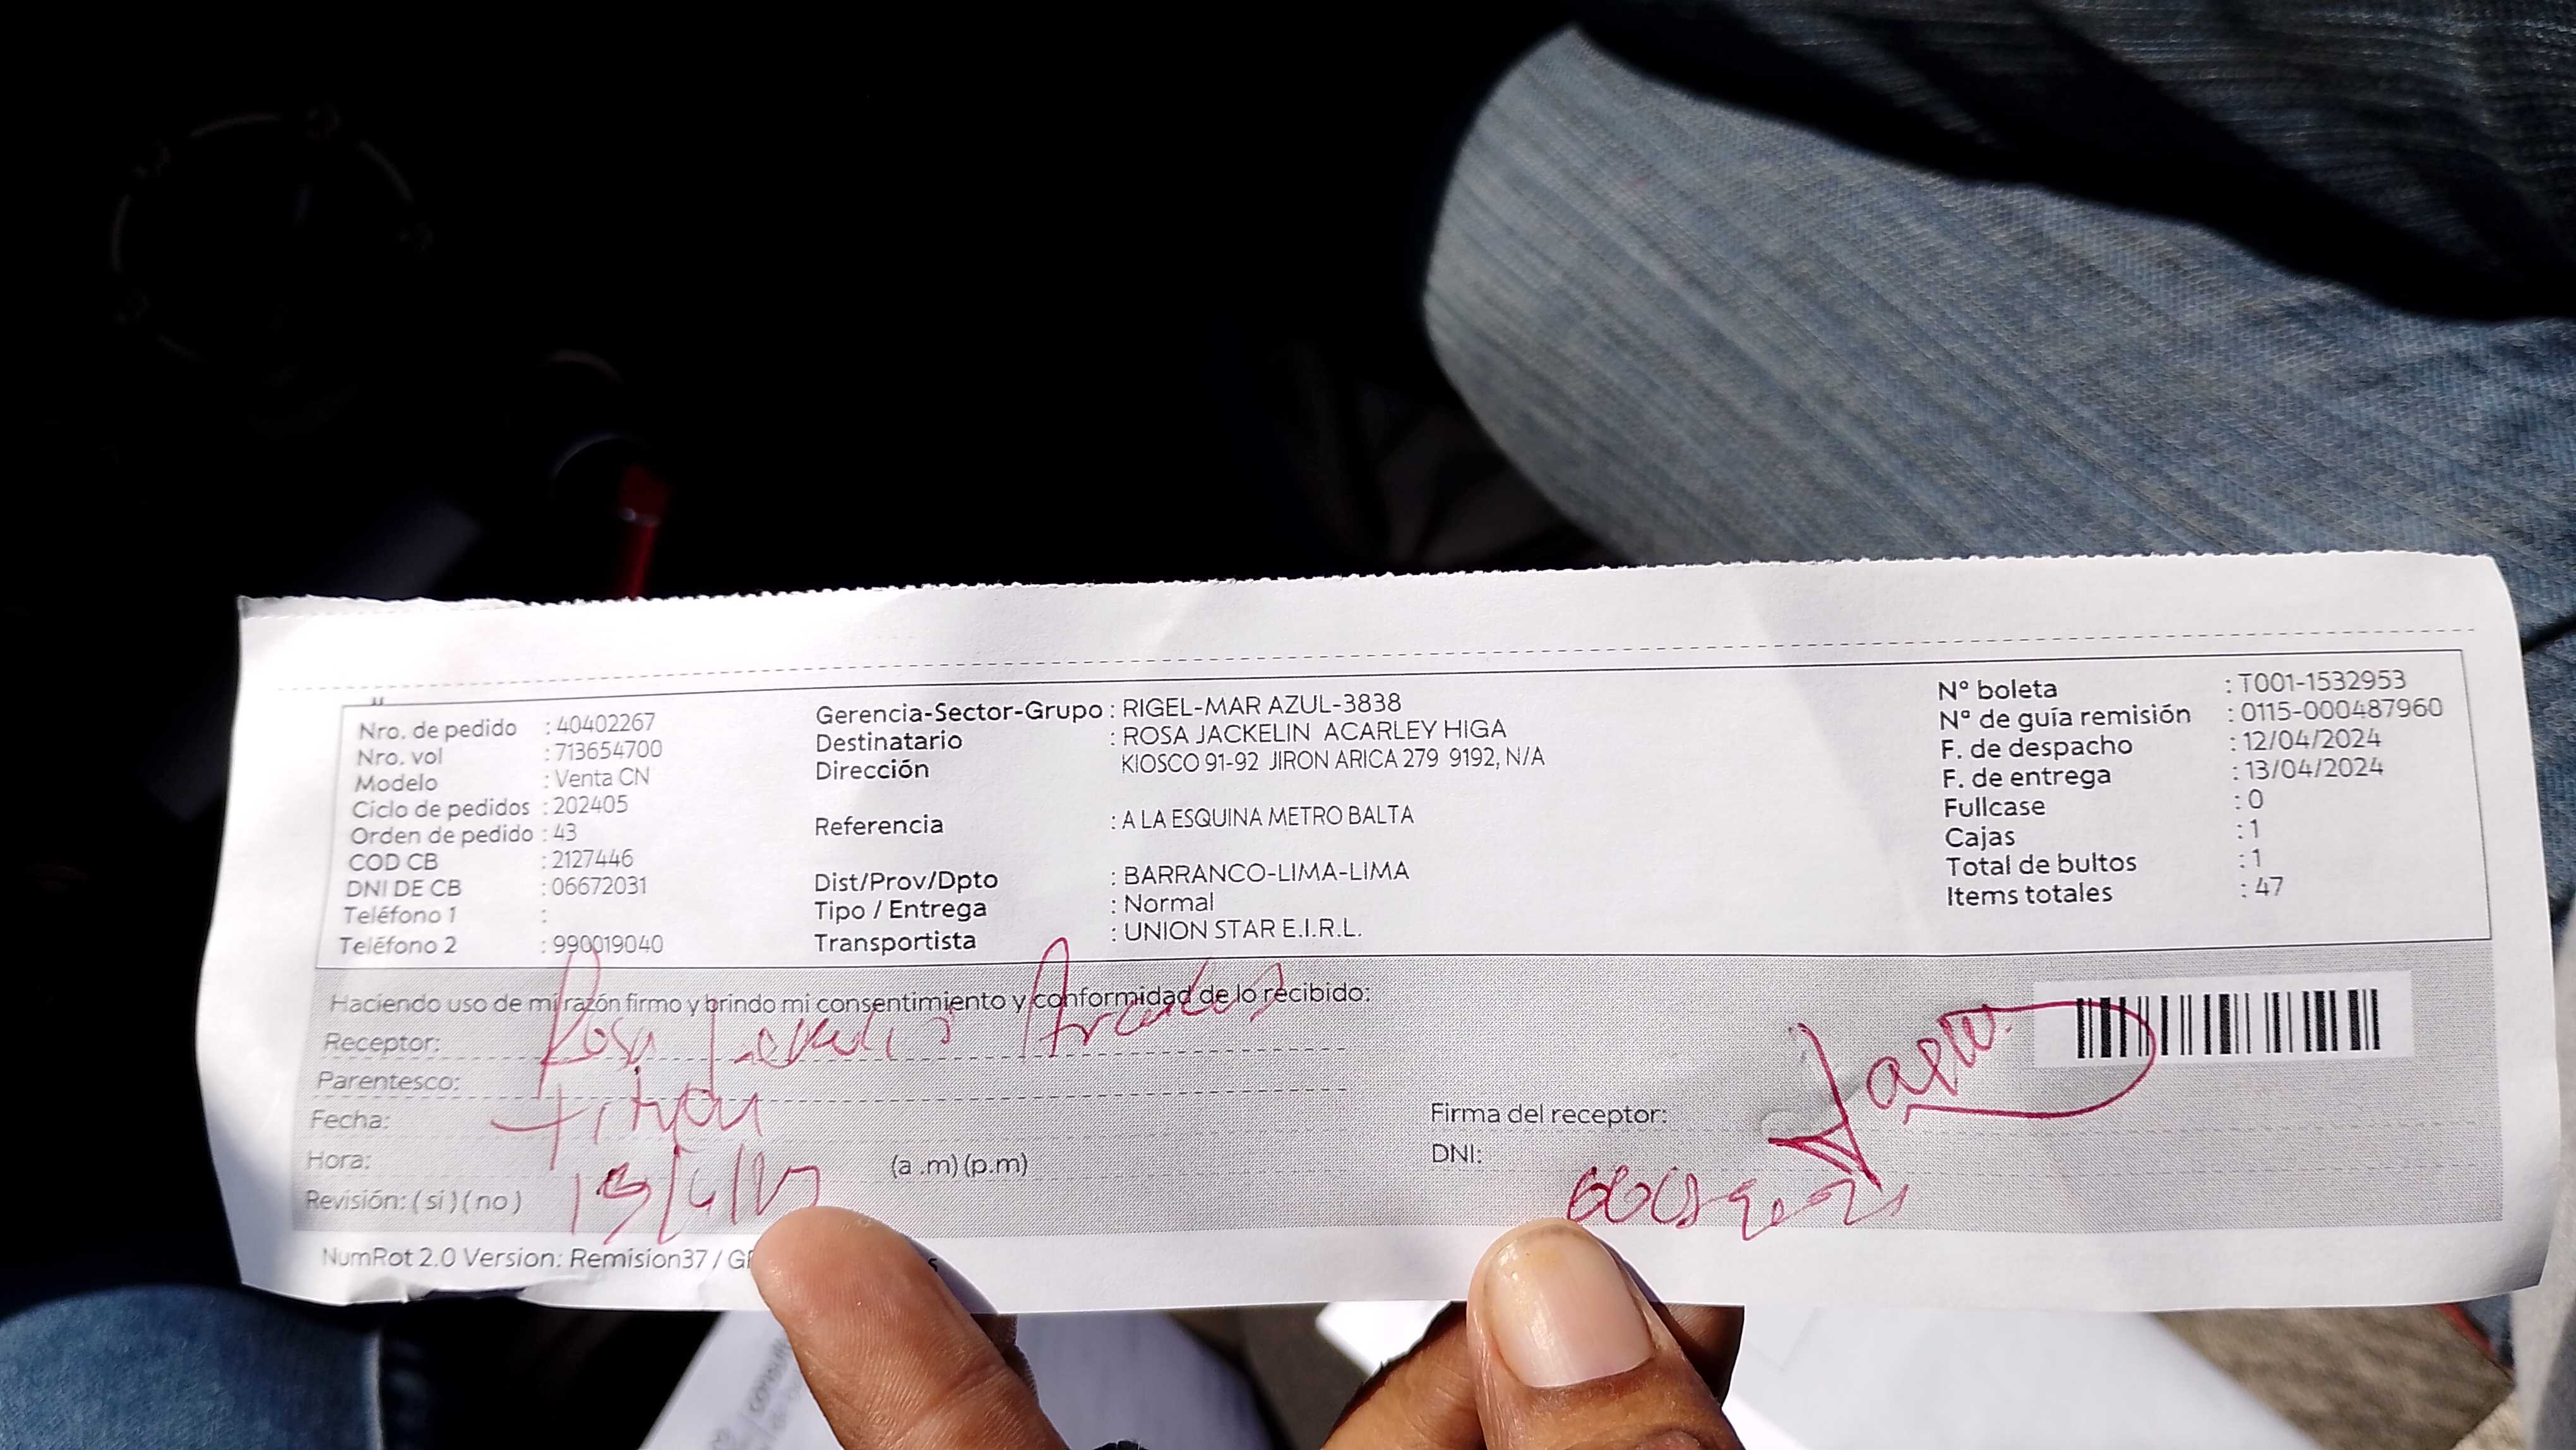 Nro. de pedido : 40402267
Nro. vol : 713654700
Modelo : Venta CN
Ciclo de pedidos : 202405
Orden de pedido : 43
COD CB : 2127446
DNI DE CB : 06672031
Teléfono 1 :
Teléfono 2 : 990019040
Gerencia-Sector-Grupo : RIGEL-MAR AZUL-3838
Destinatario : ROSA JACKELIN ACARLEY HIGA
Dirección KIOSCO 91-92 JIRON ARICA 279 9192, N/A
Referencia : A LA ESQUINA METRO BALTA
Dist/Prov/Dpto : BARRANCO-LIMA-LIMA
Tipo / Entrega : Normal
Transportista : UNION STAR E.I.R.L.
Nº boleta : T001-1532953
Nº de guía remisión : 0115-000487960
F. de despacho : 12/04/2024
F. de entrega : 13/04/2024
Fullcase : 0
Cajas : 1
Total de bultos : 1
Items totales : 47
Haciendo uso de mi razón firmo y brindo mi consentimiento y conformidad de lo recibido:
Receptor: Rosa
Parentesco:
Fecha:
Hora: (a .m) (p.m)
Revisión: ( si ) ( no )
Firma del receptor:
DNI:
NumRot 2.0 Version: Remision37 /